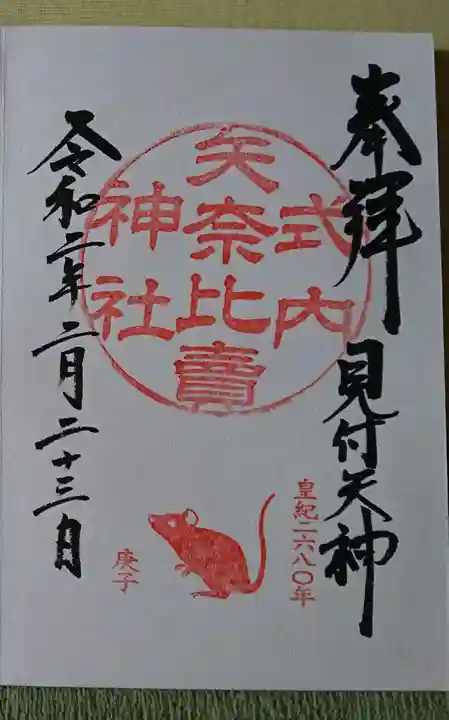 奉拝 見付天神
式内
矢奈比賣
神社
皇紀二六八〇年
庚子
令和二年 二月 二十三日